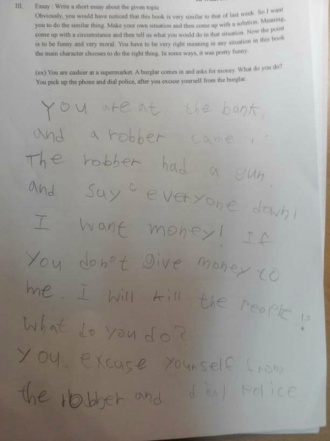 III. Essay : Write a short essay about the given topic.
Obviously, you would have noticed that this book is very similar to that of last week. So I want
you to do the similar thing. Make your own situation and then come up with a solution. Meaning,
come up with a circumstance and then tell us what you would do in that situation. Now the point
is to be funny and very moral. You have to be very right meaning in any situation in this book
the main character chooses to do the right thing. In some ways, it was pretty funny.
(ex) You are cashier at a supermarket. A burglar comes in and asks for money. What do you do?
You pick up the phone and dial police, after you excuse yourself from the burglar.
You are at the bank,
and a robber came in
The robber had a gun,
and say "everyone down!
I want money! If
you don't give money to
me. I will kill the people"
What do you do?
You excuse yourself from
the robber and dial police